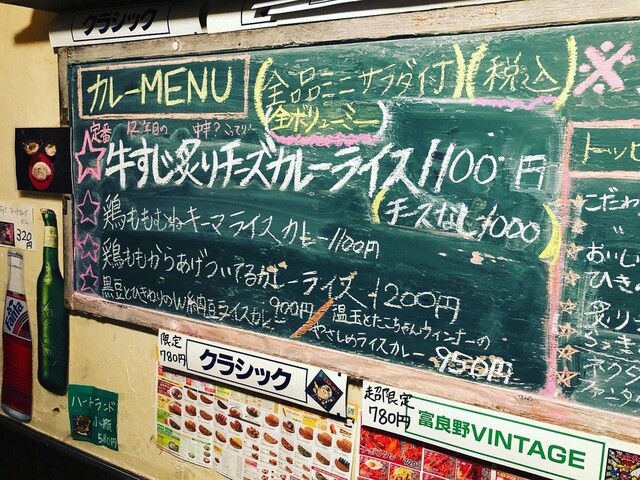 クラシック
カレーMENU
(全品ミニサラダ付)(税込)※
全ボリューミー
定番 12年目の
牛すじ炙りチーズカレーライス 1100円
(チーズなし1000)
鶏ももむねキーマライスカレー1100円
鶏ももからあげついてるカレーライス 1200円
黒豆とひきわりのW納豆ライスカレー 900円
温玉とたこちゃんウィンナーの
やさしめライスカレー 950円
トッピ
こだわ
おいし
ひきの
炙り
320
円
Fanta
ハートランド
小瓶
500円
限定
780円
クラシック
超限定
780円
富良野VINTAGE